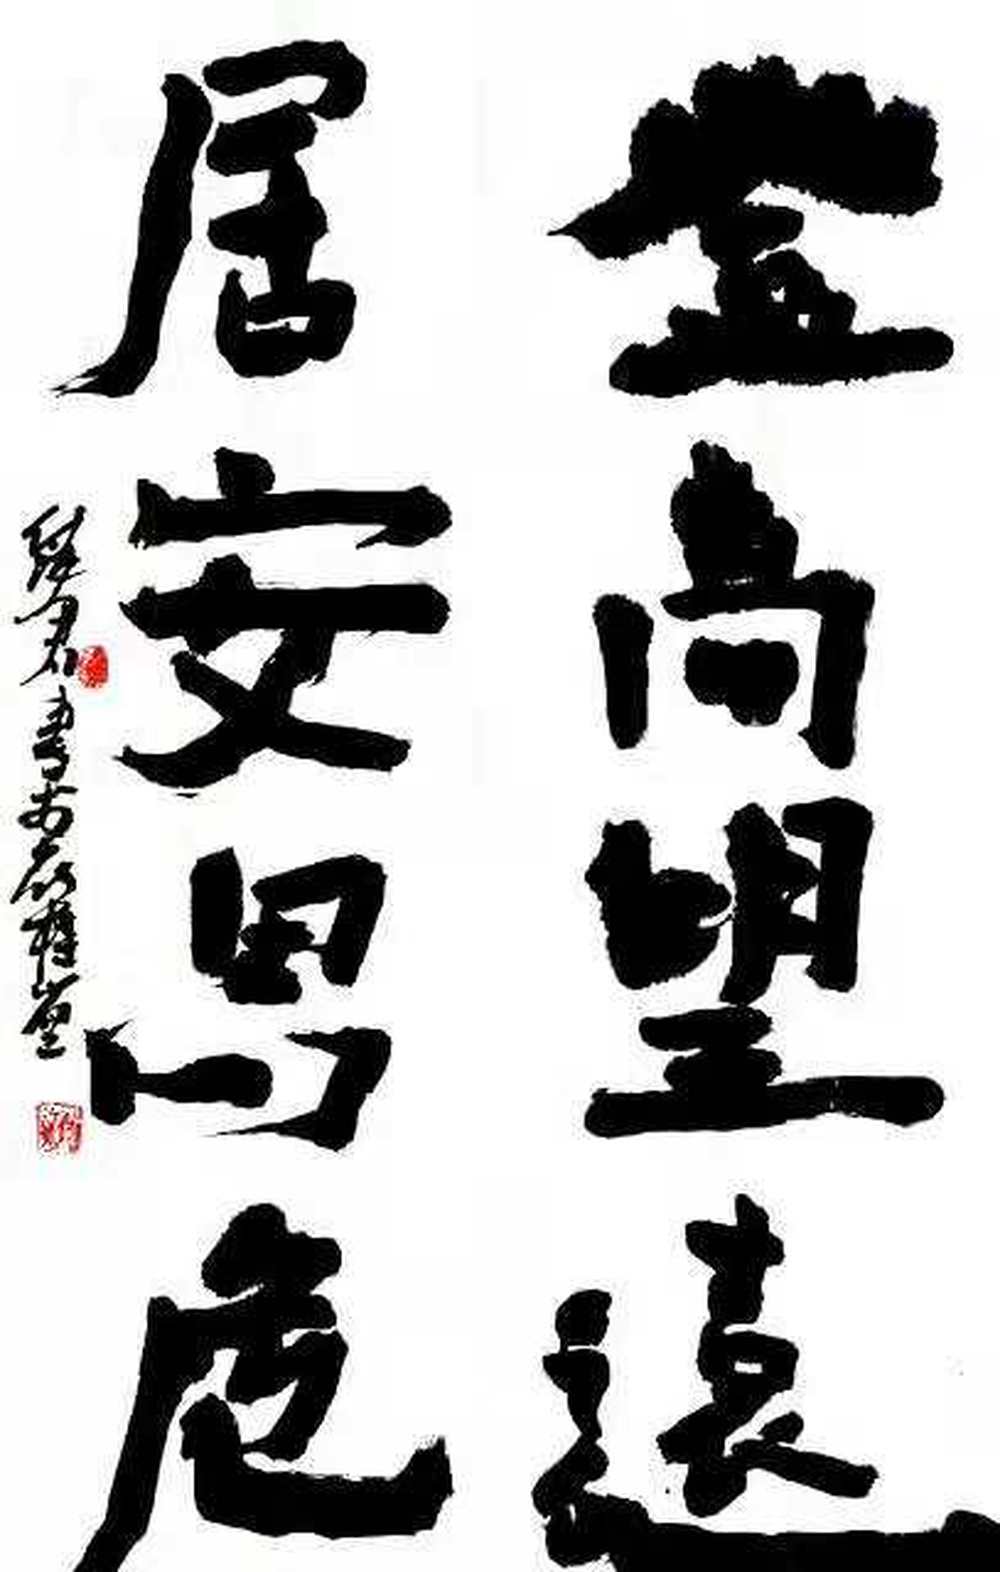 登高望遠
居安思危
君書於